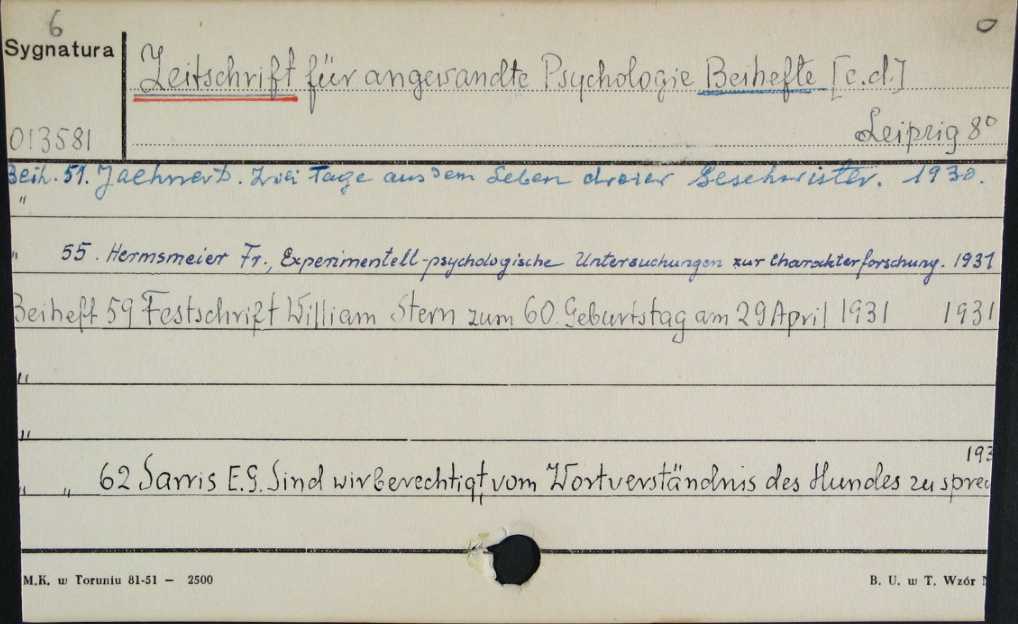 6
Sygnatura
Zeitschrift für angewandte Psychologie Beihefte [c.d.]
013581
Leipzig 8°
Beih. 51. Jaehnert. Zwei Tage aus dem Leben dreier Geschwister. 1930.
"
" 55. Hermsmeier Fr., Experimentell-psychologische Untersuchungen zur Charakterforschung. 1931
Beiheft 59 Festschrift William Stern zum 60. Geburtstag am 29 April 1931 1931
"
"
193
" " 62 Sarris E.G. Sind wir berechtigt, vom Wortverständnis des Hundes zu sprec
M.K. w Toruniu 81-51 — 2500
B. U. w T. Wzór